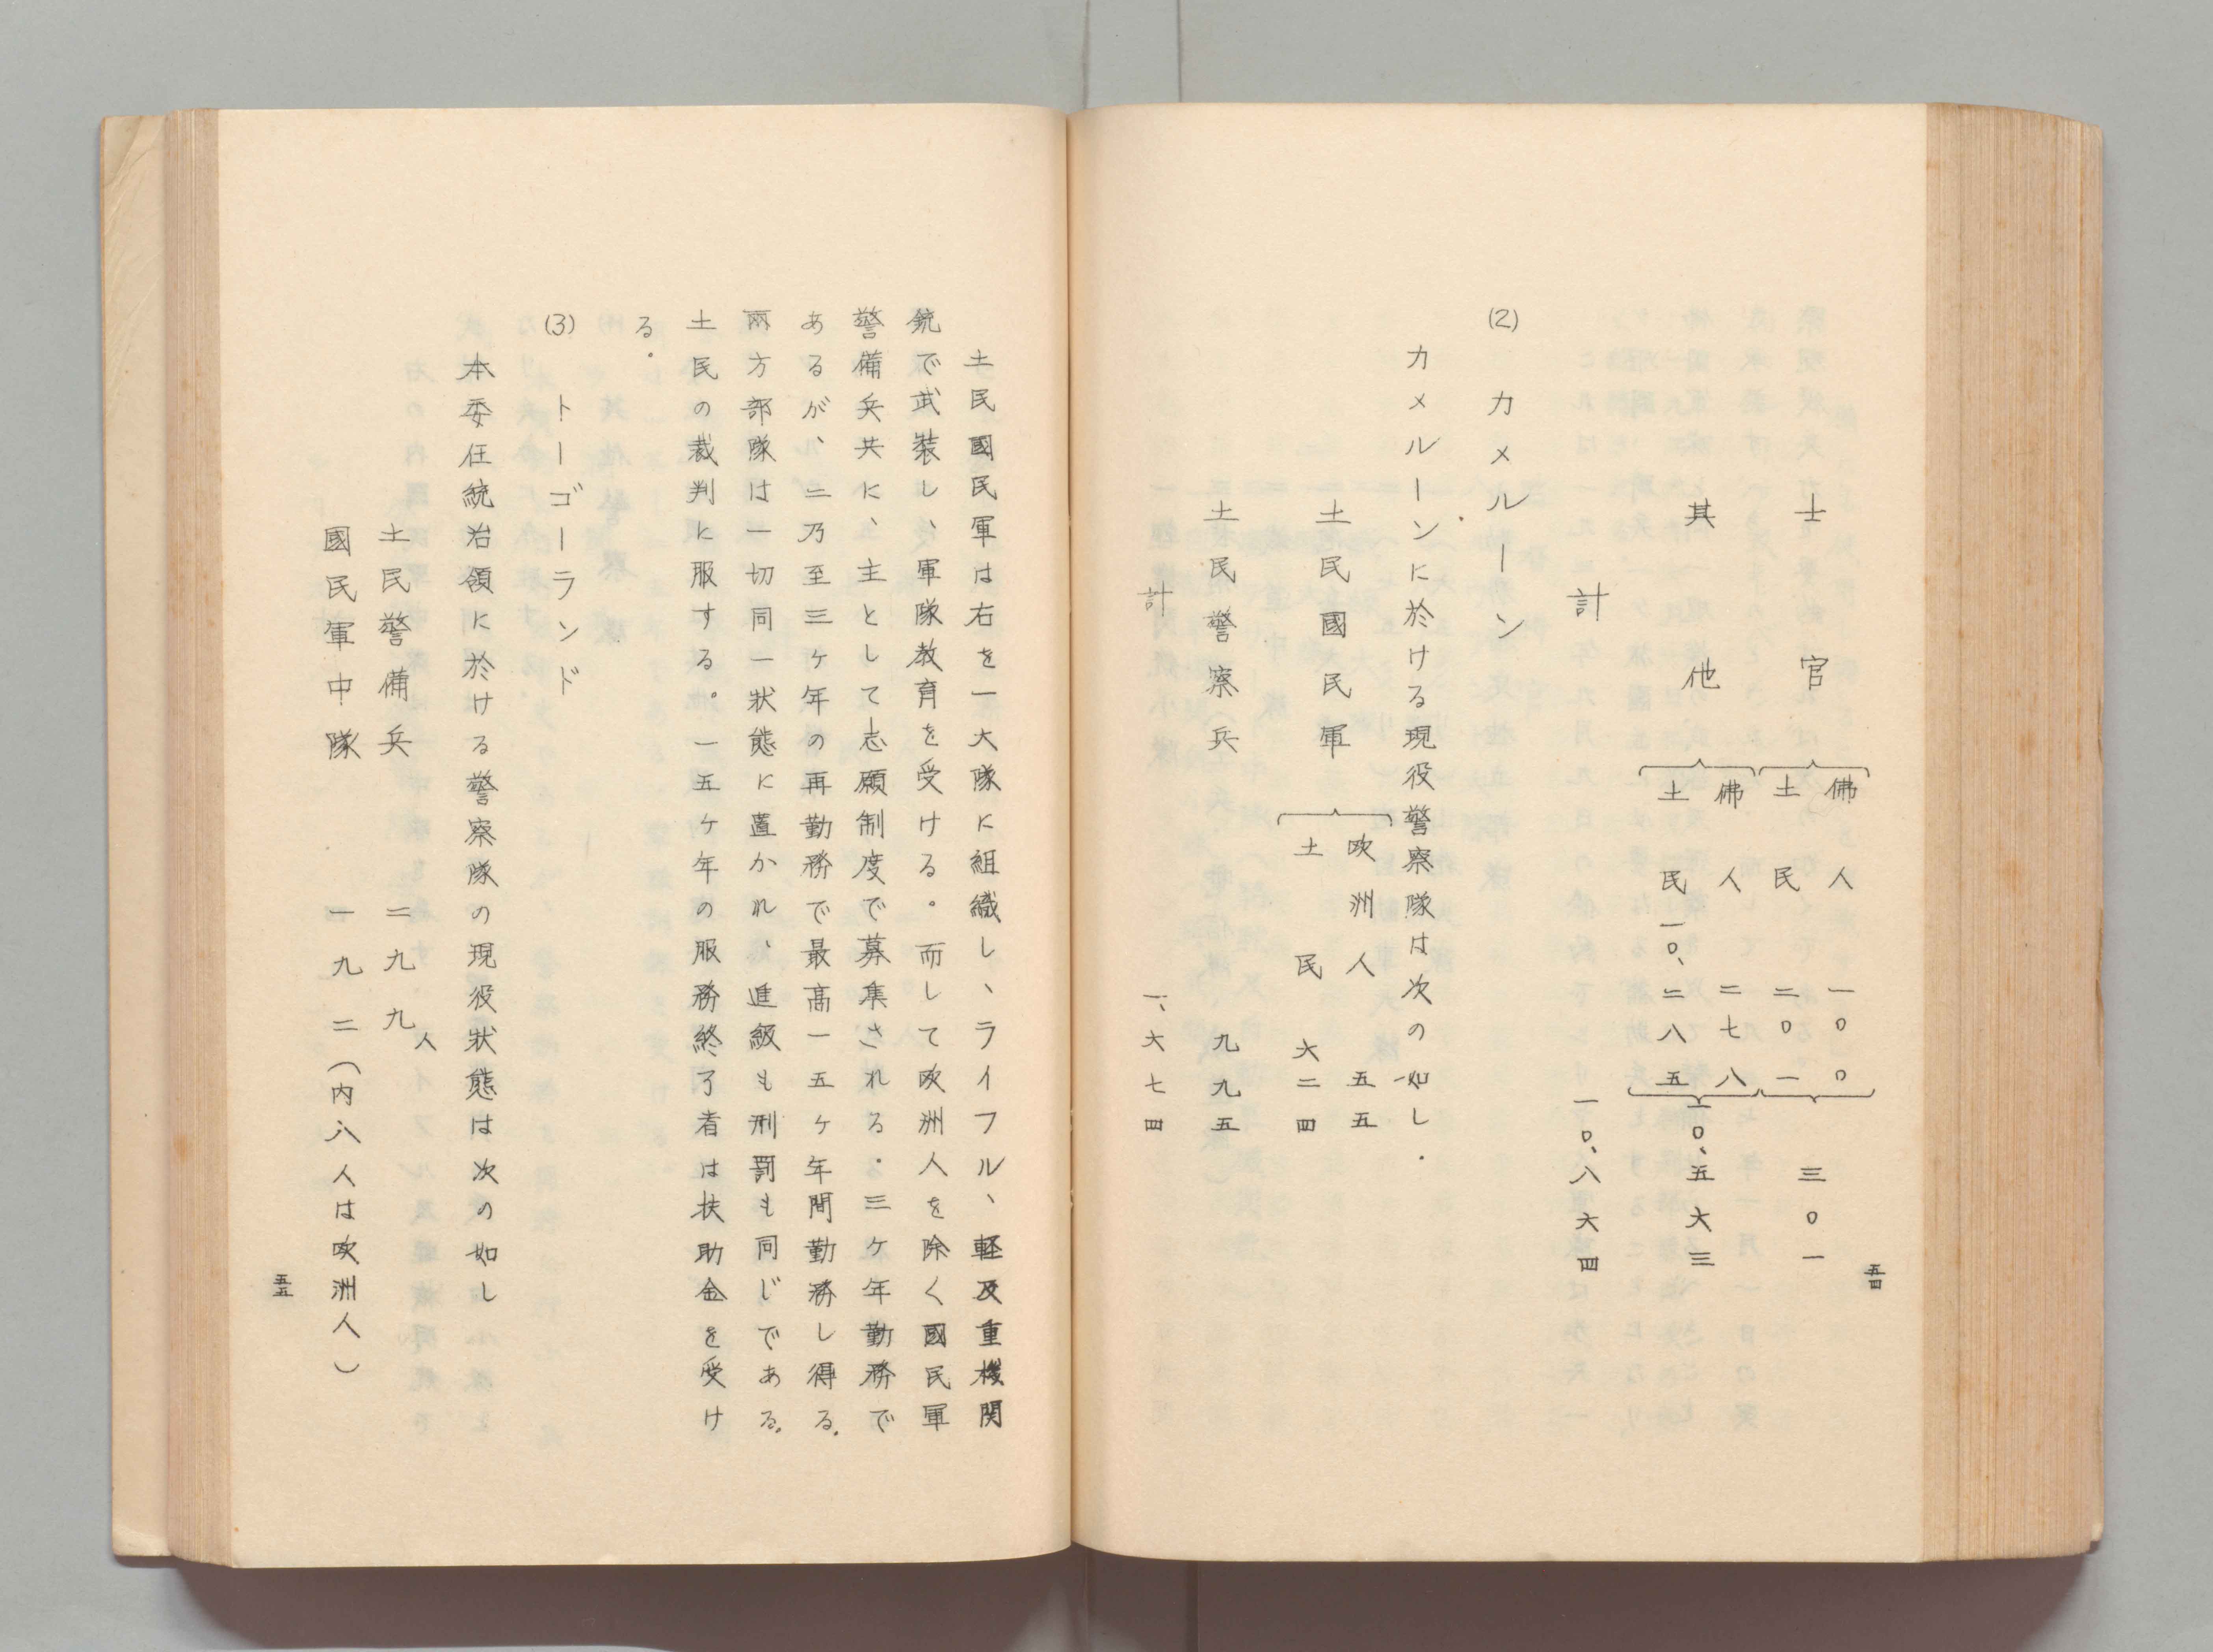 五四
士官 佛人 一〇〇 三〇一
土民 二〇一
其他 佛人 二七八 一〇、五六三
土民 一〇、二八五
計 一〇、八六四
(2) カメルーン
カメルーンに於ける現役警察隊は次の如し.
土民國民軍 欧洲人 五五
土民 六二四
土民警察兵 九九五
計 一、六七四
土民國民軍は右を一大隊に組織し、ライフル、軽及重機関
銃で武装し、軍隊教育を受ける。而して欧洲人を除く國民軍
警備兵共に、主として志願制度で募集される.三ヶ年勤務で
あるが、二乃至三ヶ年の再勤務で最高一五ヶ年間勤務し得る.
兩方部隊は一切同一状態に置かれ、進級も刑罰も同じである.
土民の裁判に服する。一五ヶ年の服務終了者は扶助金を受け
る.
(3) トーゴーランド
本委任統治領に於ける警察隊の現役状態は次の如し
土民警備兵 二九九人
國民軍中隊 一九二(内八人は欧洲人)
五五